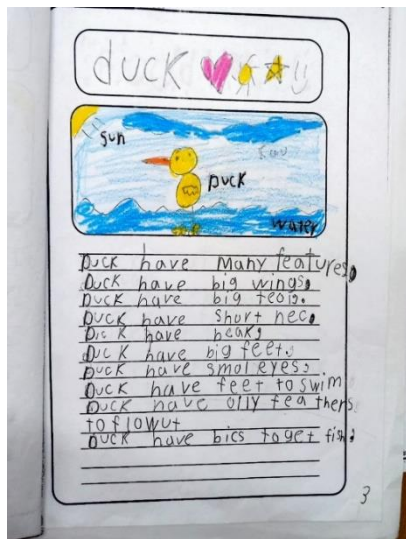 duck
sun
Duck
water
Duck have many features,
Duck have big wings,
Duck have big teois.
Duck have short nec,
Duck have beak,
Duck have big feet.
Duck have smol eyes.
Duck have feet to swim
Duck have oily feathers
to flowut
Duck have bics to get fish,
3